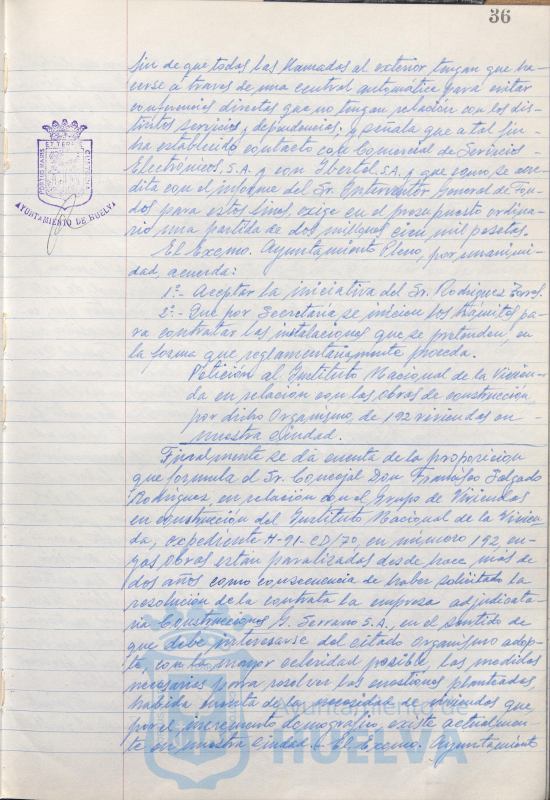 36
fin de que todas las llamadas al exterior tengan que ha-
cerse a través de una central automática para evitar
conferencias directas que no tengan relación con los dis-
tintos servicios y dependencias; y señala que a tal fin
ha establecido contacto con Comercial de Servicios
Electrónicos, S.A. y con Ibertel, S.A. y que como se acre-
dita con el informe del Sr. Interventor General de Fon-
dos para estos fines, existe en el presupuesto ordina-
rio una partida de dos millones cien mil pesetas.
El Excmo. Ayuntamiento Pleno, por unanimi-
dad, acuerda:
1º.- Aceptar la iniciativa del Sr. Rodríguez
2º.- Que por Secretaría se inicien los trámites pa-
ra contratar las instalaciones que se pretenden, en
la forma que reglamentariamente proceda.
Petición al Instituto Nacional de la Vivien-
da en relación con las obras de construcción,
por dicho Organismo, de 192 viviendas en
nuestra Ciudad.
Finalmente se da cuenta de la proposición
que formula el Sr. Concejal Don Francisco Salgado
Rodríguez en relación con el Grupo de Viviendas
en construcción del Instituto Nacional de la Vivien-
da, expediente H-91-CD/70, en número 192, cu-
yas obras están paralizadas desde hace más de
dos años como consecuencia de haber solicitado la
resolución de la contrata la empresa adjudicata-
ria Construcciones Serrano S.A., en el sentido de
que debe interesarse del citado Organismo adop-
te, con la mayor celeridad posible, las medidas
necesarias para resolver las cuestiones planteadas,
habida cuenta de la necesidad de viviendas que
por el incremento demográfico existe actualmen-
te en nuestra Ciudad. El Excmo. Ayuntamiento
AYUNTAMIENTO DE HUELVA
Ayuntamiento de
HUELVA